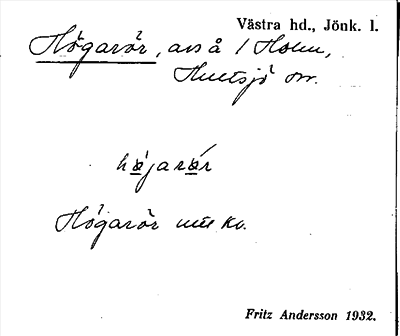 Västra hd., Jönk. l.
Högarör, avs å 1 Holm,
Hultsjö sn.
högarör
Högarör enl kv.
Fritz Andersson 1932.